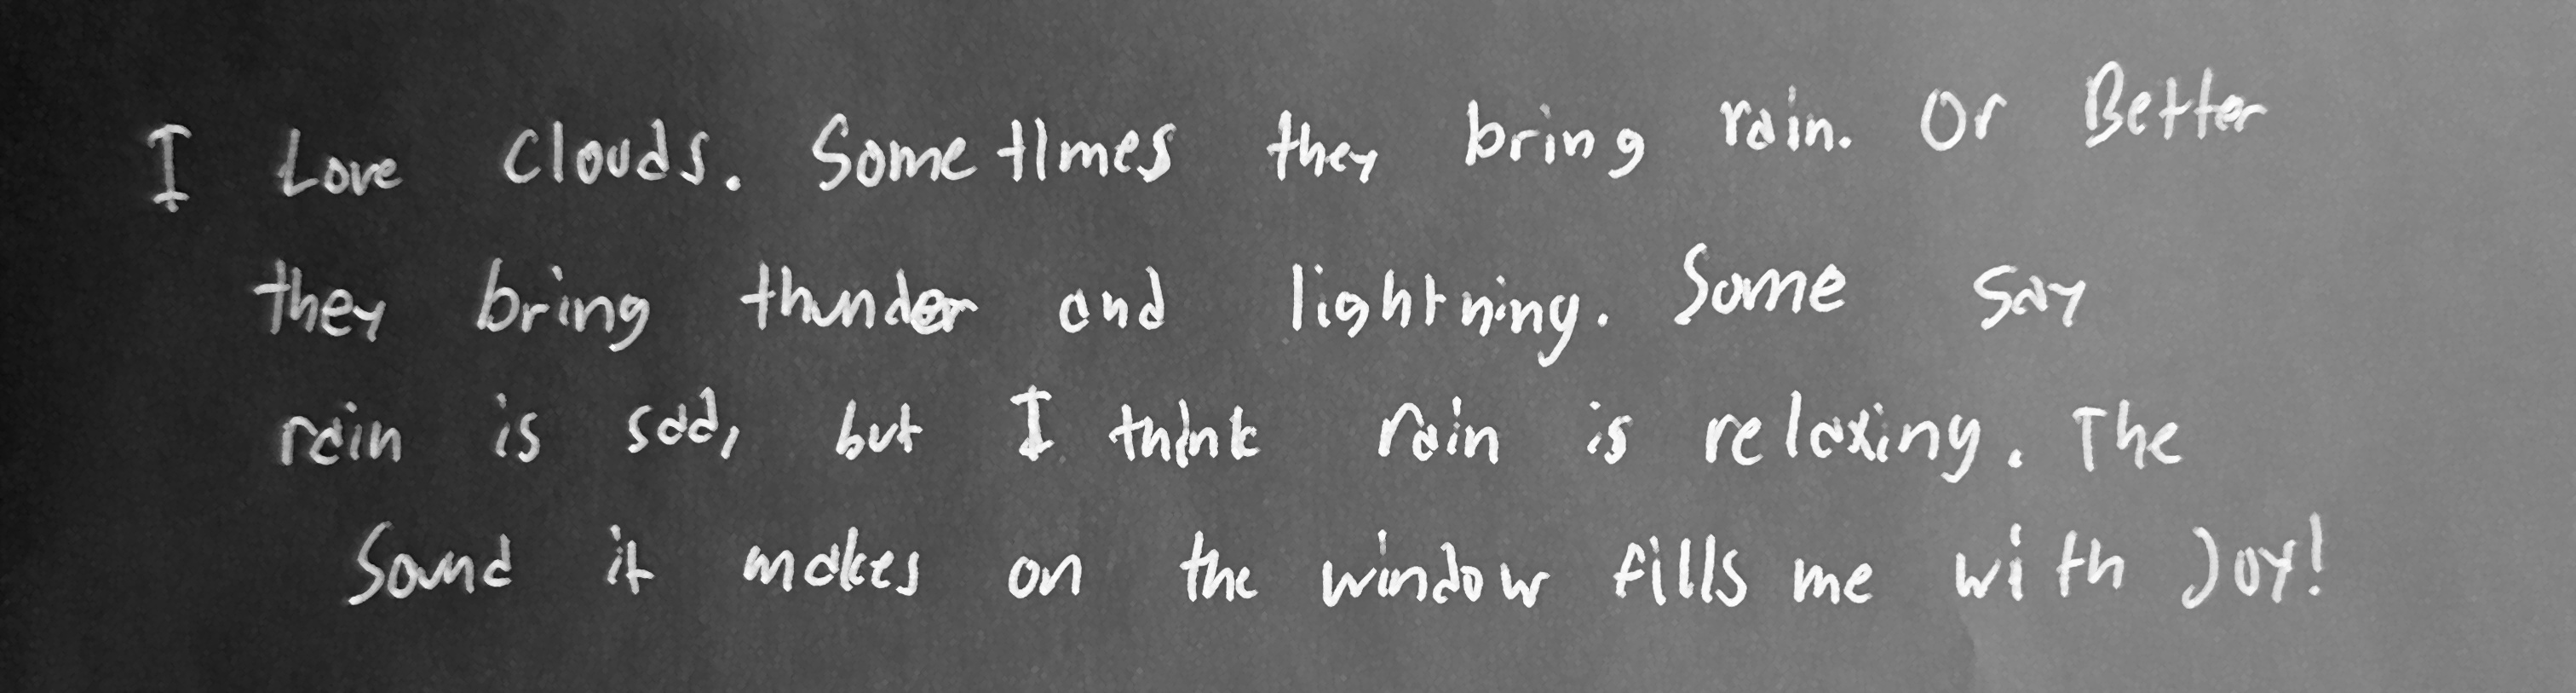 I Love clouds. Sometimes they bring rain. Or Better
they bring thunder and lightning. Some say
rain is sad, but I think rain is relaxing. The
Sound it makes on the window fills me with Joy!